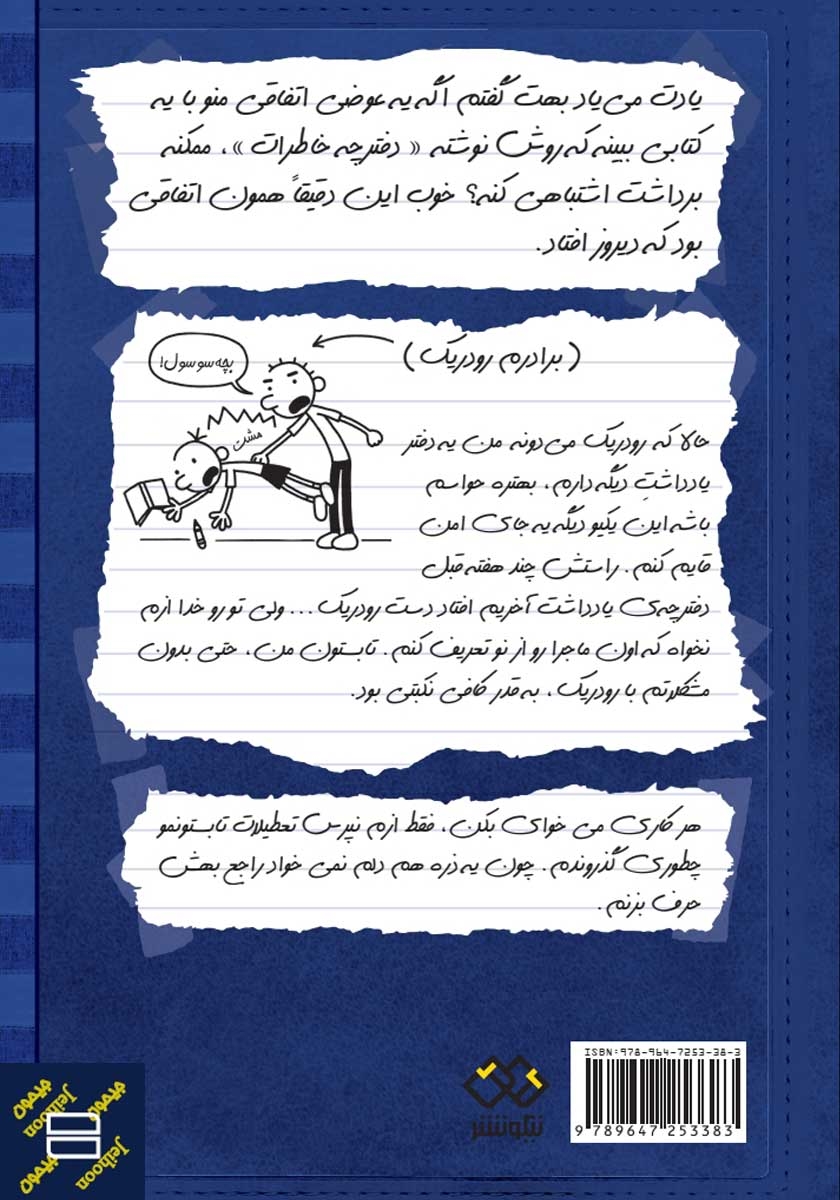 یادت می‌یاد بهت گفتم اگه یه عوضی اتفاقی منو با یه
کتابی ببینه که روش نوشته « دفترچه خاطرات » ، ممکنه
برداشت اشتباهی کنه؟ خوب این دقیقاً همون اتفاقی
بود که دیروز افتاد.
( برادرم رودریک )
بچه سوسول!
مشت
حالا که رودریک می‌دونه من یه دفتر
یادداشتِ دیگه دارم ، بهتره حواسم
باشه این یکیو دیگه یه جای امن
قایم کنم . راستش چند هفته قبل
دفترچه‌ی یادداشت آخریم افتاد دست رودریک ... ولی تو رو خدا ازم
نخواه که اون ماجرا رو از نو تعریف کنم . تابستون من ، حتی بدون
مشکلاتم با رودریک ، به قدر کافی نکبتی بود.
هر کاری می خوای بکن ، فقط ازم نپرس تعطیلات تابستونمو
چطوری گذروندم . چون یه ذره هم دلم نمی خواد راجع بهش
حرف بزنم .
ISBN: 978-964-7253-38-3
9 789647 253383
نیکونشر
جیحون
Jeihoon
جیحون
Jeihoon